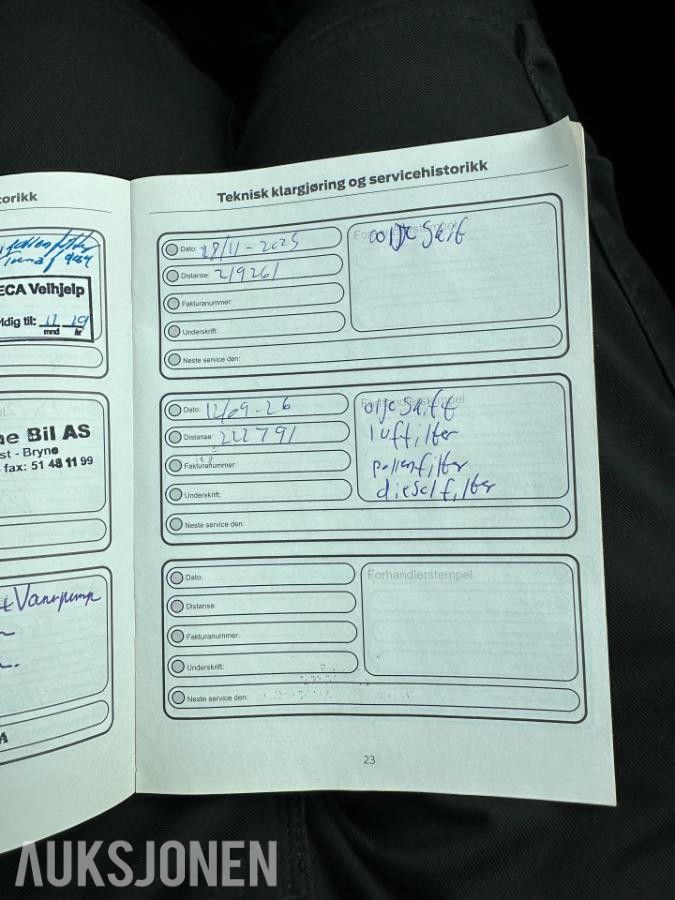 orikk
ECA Veihjelp
ldig til: 11 19
mnd år
ne Bil AS
st - Bryne
fax: 51 48 11 99
Vannpump
Teknisk klargjøring og servicehistorikk
Dato: 28/11-2025
Distanse: 219261
Fakturanummer:
Underskrift:
Neste service den:
Forhandlerstempel
oljeskift
Dato: 12/09-26
Distanse: 222791
Fakturanummer:
Underskrift:
Neste service den:
Forhandlerstempel
oljeskift
luftilter
pollenfilter
dieselfilter
Dato:
Distanse:
Fakturanummer:
Underskrift:
Neste service den:
Forhandlerstempel
23
AUKSJONEN